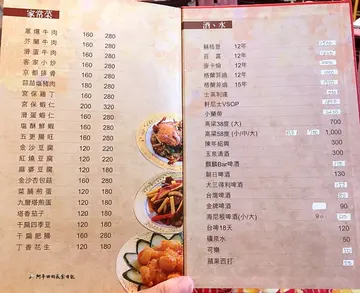 家常菜
蔥爆牛肉 160 280
芥蘭牛肉 160 280
滑蛋牛肉 160 280
客家小炒 160 280
京都排骨 160 280
蒜苗鹹豬肉 160 280
宮保雞丁 160 280
宮保蝦仁 200 320
滑蛋蝦仁 160 280
塩酥鮮蚵 160 280
五更腸旺 160 280
金沙豆腐 120 180
紅燒豆腐 120 180
麻婆豆腐 120 180
金沙杏包菇 160 280
菜脯煎蛋 120 180
九層塔煎蛋 120 180
塔香茄子 120 180
干扁四季豆 120 180
干扁肥腸 160 280
丁香花生 120 180
酒、水
蘇格登 12年
百富 12年
麥卡倫 12年
格蘭菲迪 12年
格蘭菲迪 15年
士高利達
軒尼士VSOP
小蘭哥
高粱38度(大) 700
高粱58度(小/中/大) 1000
陳年紹興 300
玉泉清酒 300
麒麟Bar啤酒
朝日啤酒
大三得利啤酒
台灣啤酒
金牌啤酒 90
海尼根啤酒(小/大)
台啤18天 120
礦泉水 50
可樂
蘋果西打